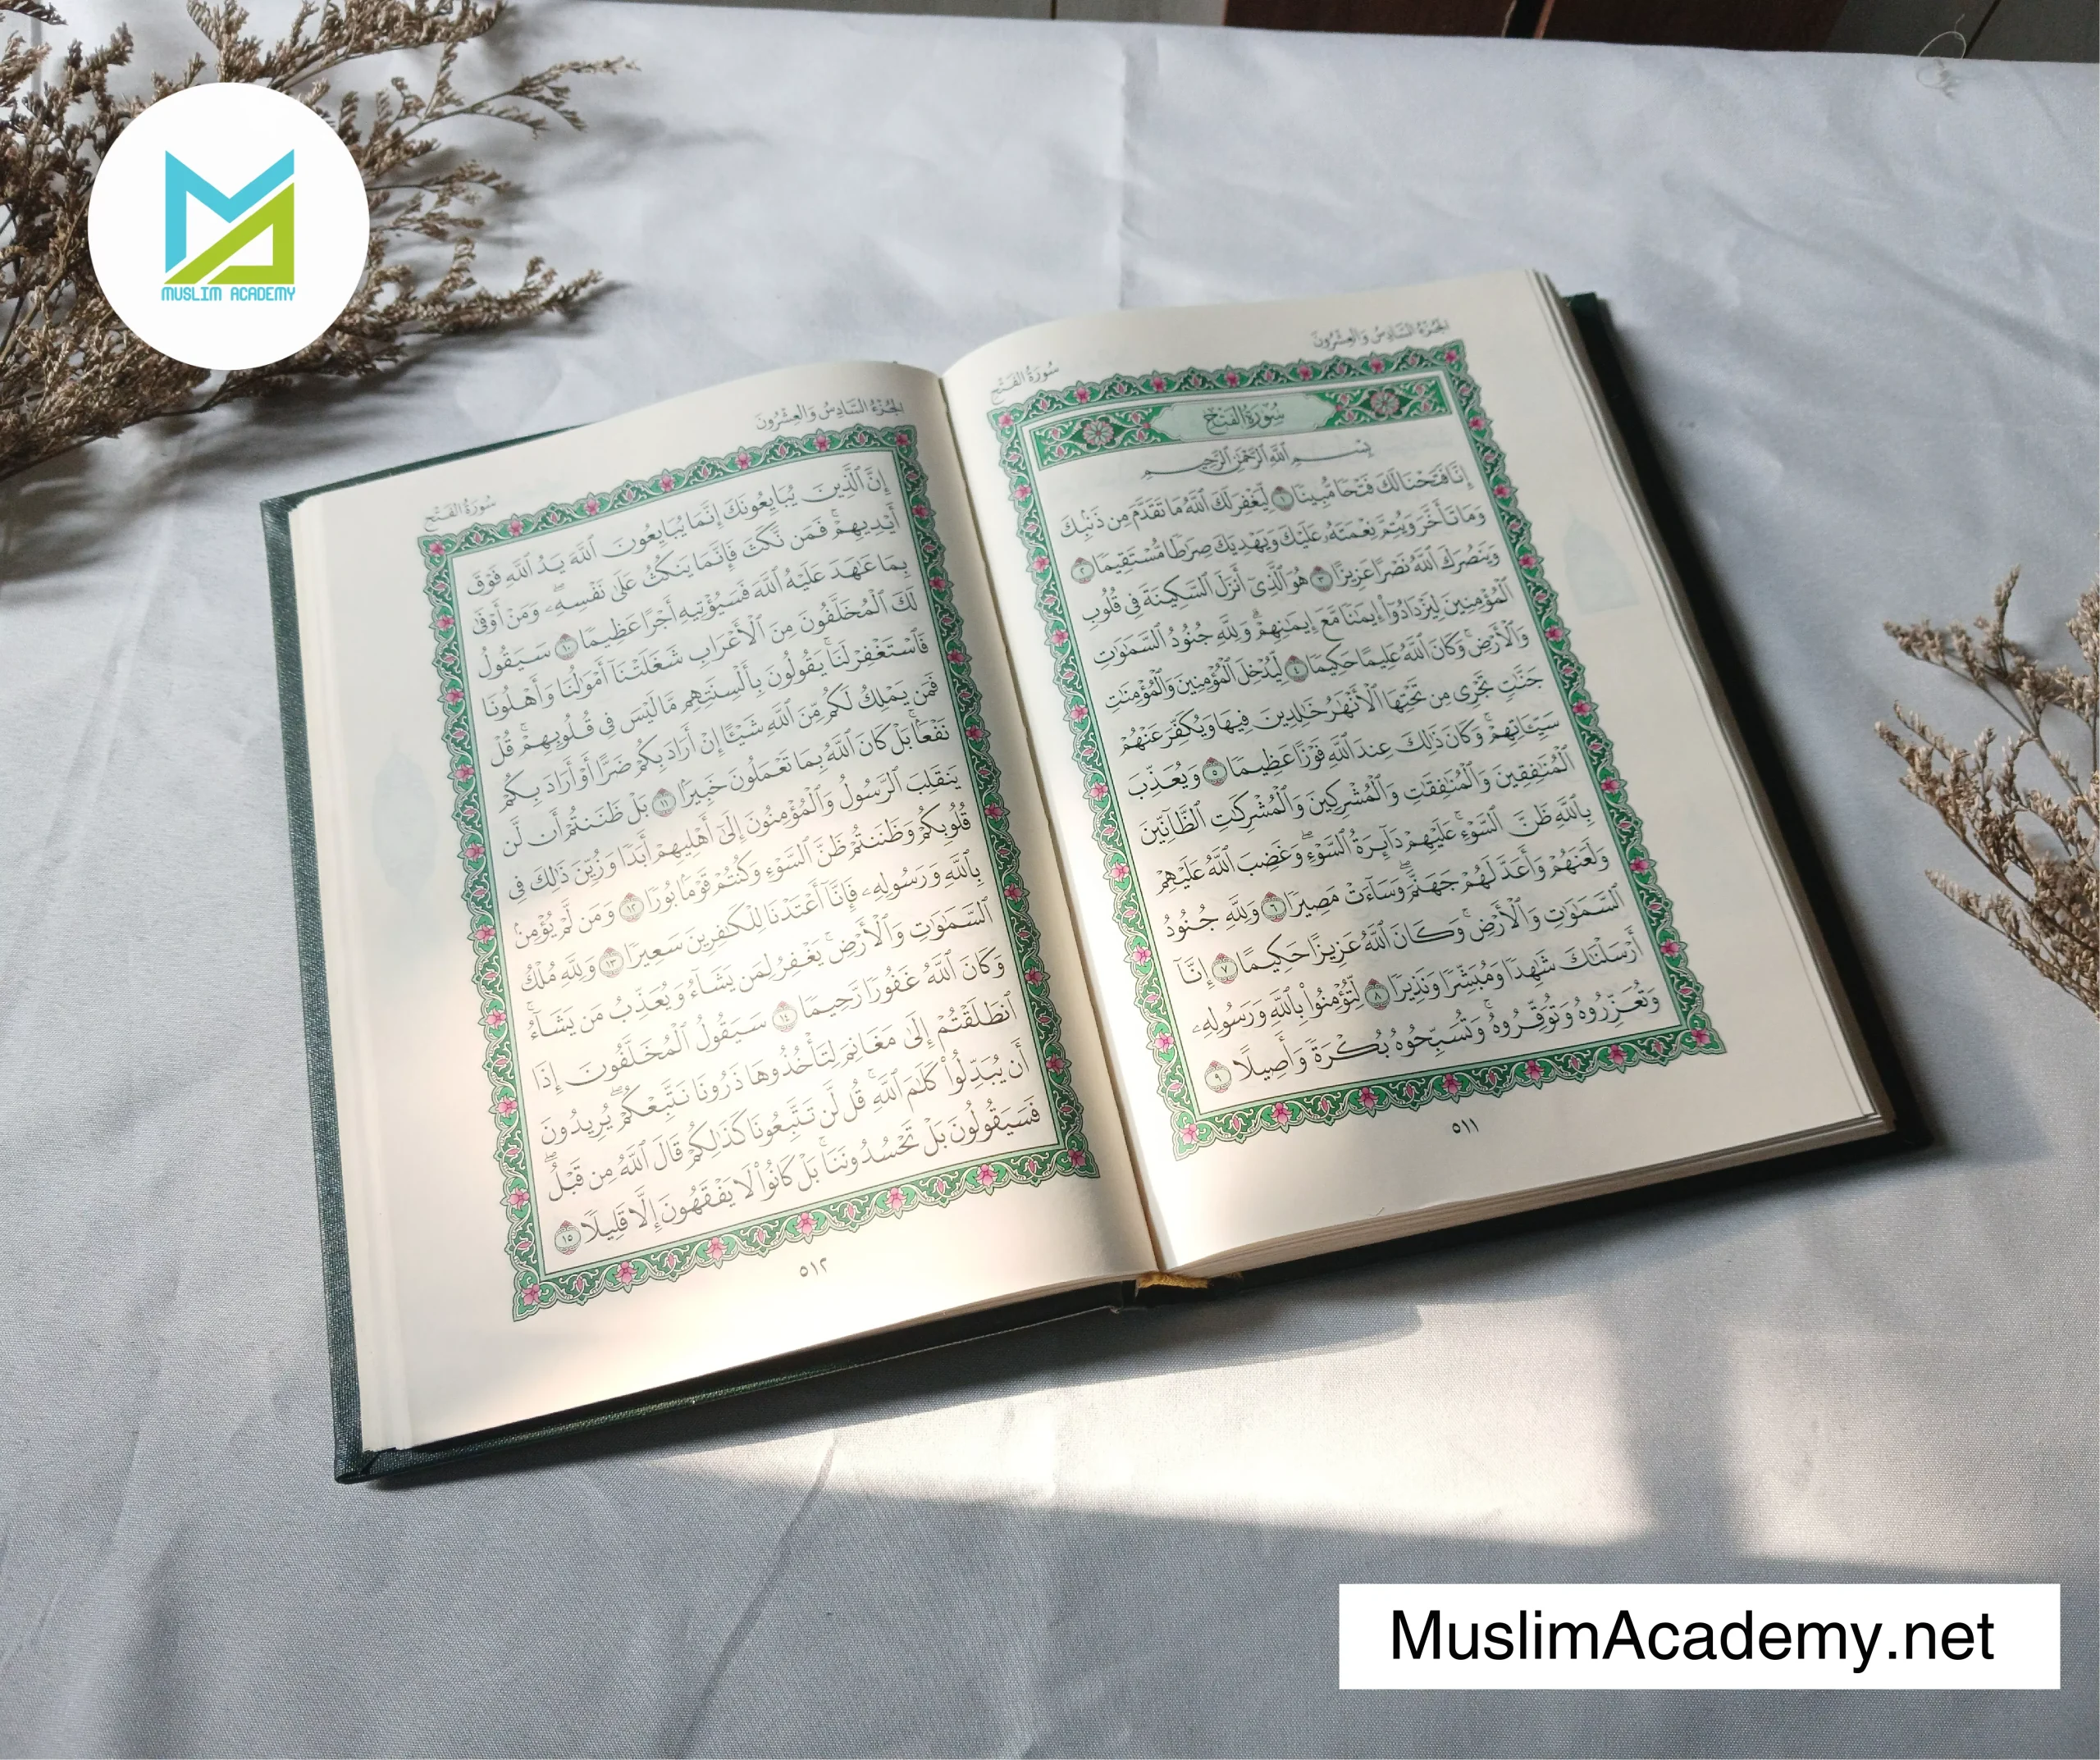 MUSLIM ACADEMY
الجزء السادس والعشرون
سورة الفتح
سُورَةُ الفَتْحِ
بِسْمِ ٱللَّهِ ٱلرَّحْمَٰنِ ٱلرَّحِيمِ
إِنَّا فَتَحْنَا لَكَ فَتْحًا مُّبِينًا ١ لِّيَغْفِرَ لَكَ ٱللَّهُ مَا تَقَدَّمَ مِن ذَنۢبِكَ
وَمَا تَأَخَّرَ وَيُتِمَّ نِعْمَتَهُۥ عَلَيْكَ وَيَهْدِيَكَ صِرَٰطًا مُّسْتَقِيمًا ٢
وَيَنصُرَكَ ٱللَّهُ نَصْرًا عَزِيزًا ٣ هُوَ ٱلَّذِىٓ أَنزَلَ ٱلسَّكِينَةَ فِى قُلُوبِ
ٱلْمُؤْمِنِينَ لِيَزْدَادُوٓا۟ إِيمَٰنًا مَّعَ إِيمَٰنِهِمْ ۗ وَلِلَّهِ جُنُودُ ٱلسَّمَٰوَٰتِ
وَٱلْأَرْضِ ۚ وَكَانَ ٱللَّهُ عَلِيمًا حَكِيمًا ٤ لِّيُدْخِلَ ٱلْمُؤْمِنِينَ وَٱلْمُؤْمِنَٰتِ
جَنَّٰتٍ تَجْرِى مِن تَحْتِهَا ٱلْأَنْهَٰرُ خَٰلِدِينَ فِيهَا وَيُكَفِّرَ عَنْهُمْ
سَيِّـَٔاتِهِمْ ۚ وَكَانَ ذَٰلِكَ عِندَ ٱللَّهِ فَوْزًا عَظِيمًا ٥ وَيُعَذِّبَ
ٱلْمُنَٰفِقِينَ وَٱلْمُنَٰفِقَٰتِ وَٱلْمُشْرِكِينَ وَٱلْمُشْرِكَٰتِ ٱلظَّآنِّينَ
بِٱللَّهِ ظَنَّ ٱلسَّوْءِ ۚ عَلَيْهِمْ دَآئِرَةُ ٱلسَّوْءِ ۖ وَغَضِبَ ٱللَّهُ عَلَيْهِمْ
وَلَعَنَهُمْ وَأَعَدَّ لَهُمْ جَهَنَّمَ ۖ وَسَآءَتْ مَصِيرًا ٦ وَلِلَّهِ جُنُودُ
ٱلسَّمَٰوَٰتِ وَٱلْأَرْضِ ۚ وَكَانَ ٱللَّهُ عَزِيزًا حَكِيمًا ٧ إِنَّآ
أَرْسَلْنَٰكَ شَٰهِدًا وَمُبَشِّرًا وَنَذِيرًا ٨ لِّتُؤْمِنُوا۟ بِٱللَّهِ وَرَسُولِهِۦ
وَتُعَزِّرُوهُ وَتُوَقِّرُوهُ ۚ وَتُسَبِّحُوهُ بُكْرَةً وَأَصِيلًا ٩
٥١١
الجزء السادس والعشرون
سورة الفتح
إِنَّ ٱلَّذِينَ يُبَايِعُونَكَ إِنَّمَا يُبَايِعُونَ ٱللَّهَ يَدُ ٱللَّهِ فَوْقَ
أَيْدِيهِمْ ۚ فَمَن نَّكَثَ فَإِنَّمَا يَنكُثُ عَلَىٰ نَفْسِهِۦ ۖ وَمَنْ أَوْفَىٰ
بِمَا عَٰهَدَ عَلَيْهُ ٱللَّهَ فَسَيُؤْتِيهِ أَجْرًا عَظِيمًا ١٠ سَيَقُولُ
لَكَ ٱلْمُخَلَّفُونَ مِنَ ٱلْأَعْرَابِ شَغَلَتْنَآ أَمْوَٰلُنَا وَأَهْلُونَا
فَٱسْتَغْفِرْ لَنَا ۚ يَقُولُونَ بِأَلْسِنَتِهِم مَّا لَيْسَ فِى قُلُوبِهِمْ ۚ قُلْ
فَمَن يَمْلِكُ لَكُم مِّنَ ٱللَّهِ شَيْـًٔا إِنْ أَرَادَ بِكُمْ ضَرًّا أَوْ أَرَادَ بِكُمْ
نَفْعًۢا ۚ بَلْ كَانَ ٱللَّهُ بِمَا تَعْمَلُونَ خَبِيرًۢا ١١ بَلْ ظَنَنتُمْ أَن لَّن
يَنقَلِبَ ٱلرَّسُولُ وَٱلْمُؤْمِنُونَ إِلَىٰٓ أَهْلِيهِمْ أَبَدًا وَزُيِّنَ ذَٰلِكَ فِى
قُلُوبِكُمْ وَظَنَنتُمْ ظَنَّ ٱلسَّوْءِ وَكُنتُمْ قَوْمًۢا بُورًا ١٢ وَمَن لَّمْ يُؤْمِنۢ
بِٱللَّهِ وَرَسُولِهِۦ فَإِنَّآ أَعْتَدْنَا لِلْكَٰفِرِينَ سَعِيرًا ١٣ وَلِلَّهِ مُلْكُ
ٱلسَّمَٰوَٰتِ وَٱلْأَرْضِ ۚ يَغْفِرُ لِمَن يَشَآءُ وَيُعَذِّبُ مَن يَشَآءُ ۚ
وَكَانَ ٱللَّهُ غَفُورًا رَّحِيمًا ١٤ سَيَقُولُ ٱلْمُخَلَّفُونَ إِذَا
ٱنطَلَقْتُمْ إِلَىٰ مَغَانِمَ لِتَأْخُذُوهَا ذَرُونَا نَتَّبِعْكُمْ ۖ يُرِيدُونَ
أَن يُبَدِّلُوا۟ كَلَٰمَ ٱللَّهِ ۚ قُل لَّن تَتَّبِعُونَا كَذَٰلِكُمْ قَالَ ٱللَّهُ مِن قَبْلُ ۖ
فَسَيَقُولُونَ بَلْ تَحْسُدُونَنَا ۚ بَلْ كَانُوا۟ لَا يَفْقَهُونَ إِلَّا قَلِيلًا ١٥
٥١٢
MuslimAcademy.net